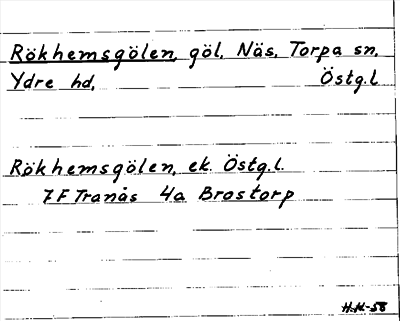 Rökhemsgölen, göl, Näs, Torpa sn,
Ydre hd, Östg.l
Rökhemsgölen, ek. Östg.l.
7F Tranås 4a Brostorp
H.M-58